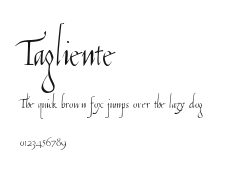 Tagliente
The quick brown fox jumps over the lazy dog
0123456789